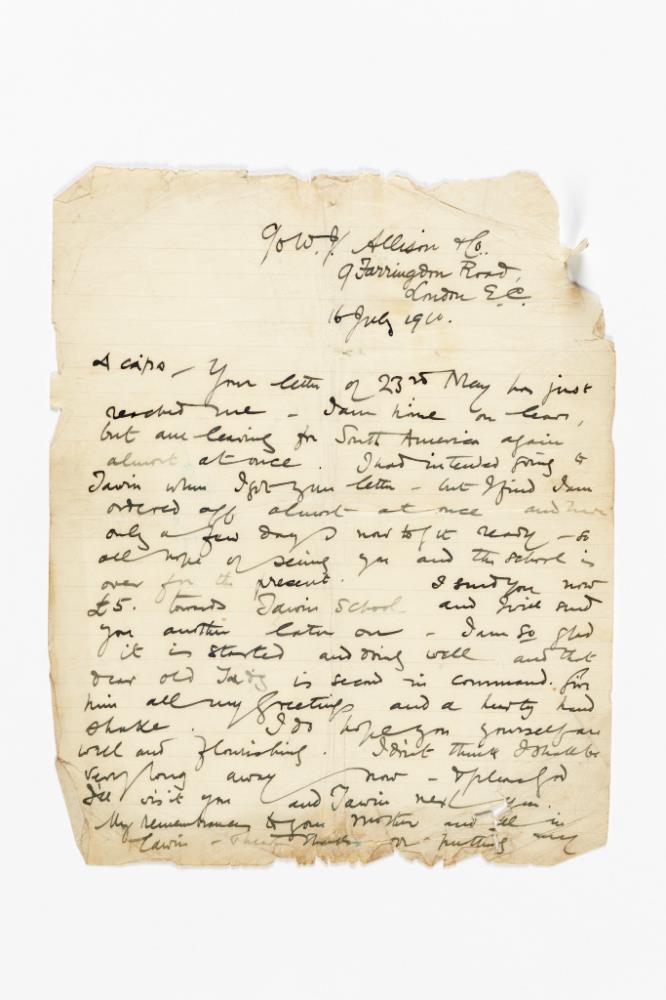 c/o W. J. Allison & Co.
9 Farringdon Road,
London E.C.
16 July 1910.
A cara – Your letter of 23rd May has just
reached me – I am home on leave,
but am leaving for South America again
almost at once. I had intended going to
Tawin when I got your letter – but I find I am
ordered off almost at once and have
only a few days now to get ready – so
all hope of seeing you and the school is
over for the present. I send you now
£5. towards Tawin School and I will send
you another later on – I am so glad
it is started and doing well and that
dear old is second in command. Give
him all my greetings and a hearty hand
shake. I do hope you yourself are
well and flourishing. I don't think I shall be
very long away now – & please God
I'll visit you and Tawin next year.
My remembrances to your mother and all in
Tawin – thanks for putting my